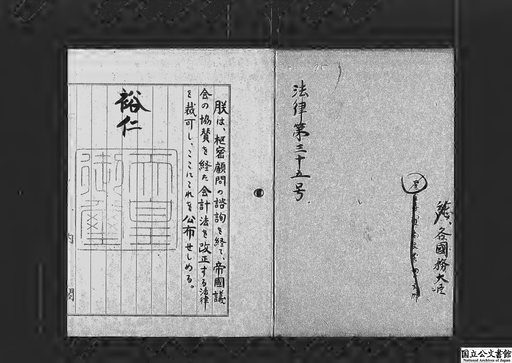 法律第三十五号
各國務大臣
朕は、枢密顧問の諮詢を経て、帝國議
会の協賛を経た会計法を改正する法律
を裁可し、ここにこれを公布せしめる。
裕仁
天皇
御璽
内閣
国立公文書館
National Archives of Japan